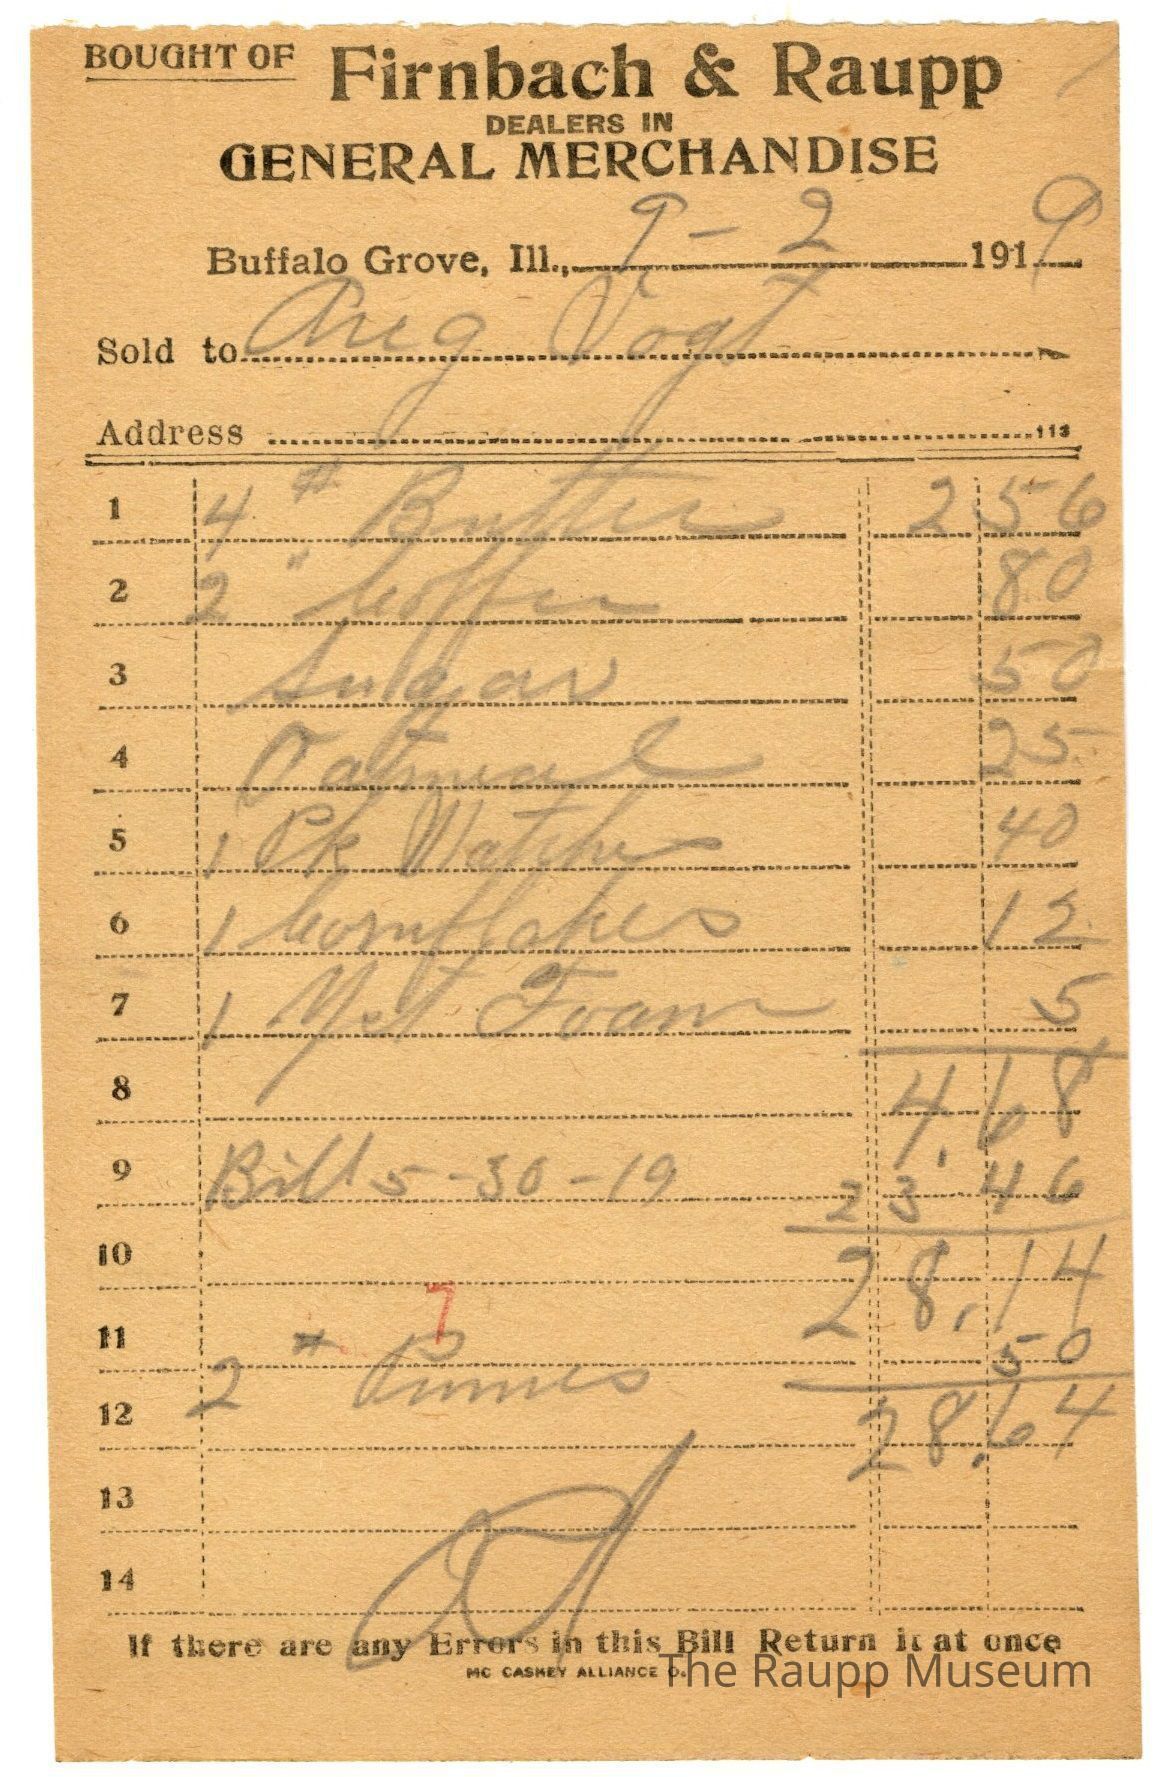 BOUGHT OF Firnbach & Raupp
DEALERS IN
GENERAL MERCHANDISE
Buffalo Grove, Ill., 9-2 1919
Sold to Aug Vogt
Address 113
1 4 # Butter 2 56
2 2 " Coffee 80
3 Sugar 50
4 Oatmeal 25
5 1 Pk Matches 40
6 1 Cornflakes 12
7 1 Yst Foam 5
8 4.68
9 Bill 5-30-19 23.46
10 28.14
7
11 2 # Prunes 50
12 28.64
13
14
If there are any Errors in this Bill Return it at once
MC CASKEY ALLIANCE O.
The Raupp Museum